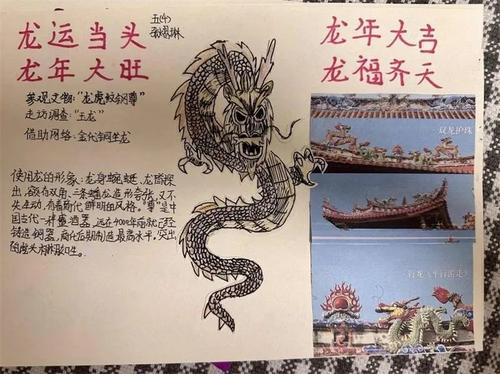 龙运当头
龙年大旺
五(4)
龙年大吉
龙福齐天
参观文物:“龙虎纹铜尊”
走访调查:“玉龙”
借助网络:金代铜坐龙
使用龙的形象:龙身蜿蜒,龙首探
出,额有双角,三条蟠龙造形夸张,又不
失生动,有着商代鲜明的风格。“尊”是中
国古代一种盛酒器,远在4000年前就已经
铸造铜器,商代后期制造最高水平,突出
的龙头栩栩如生。
双龙护珠
行龙